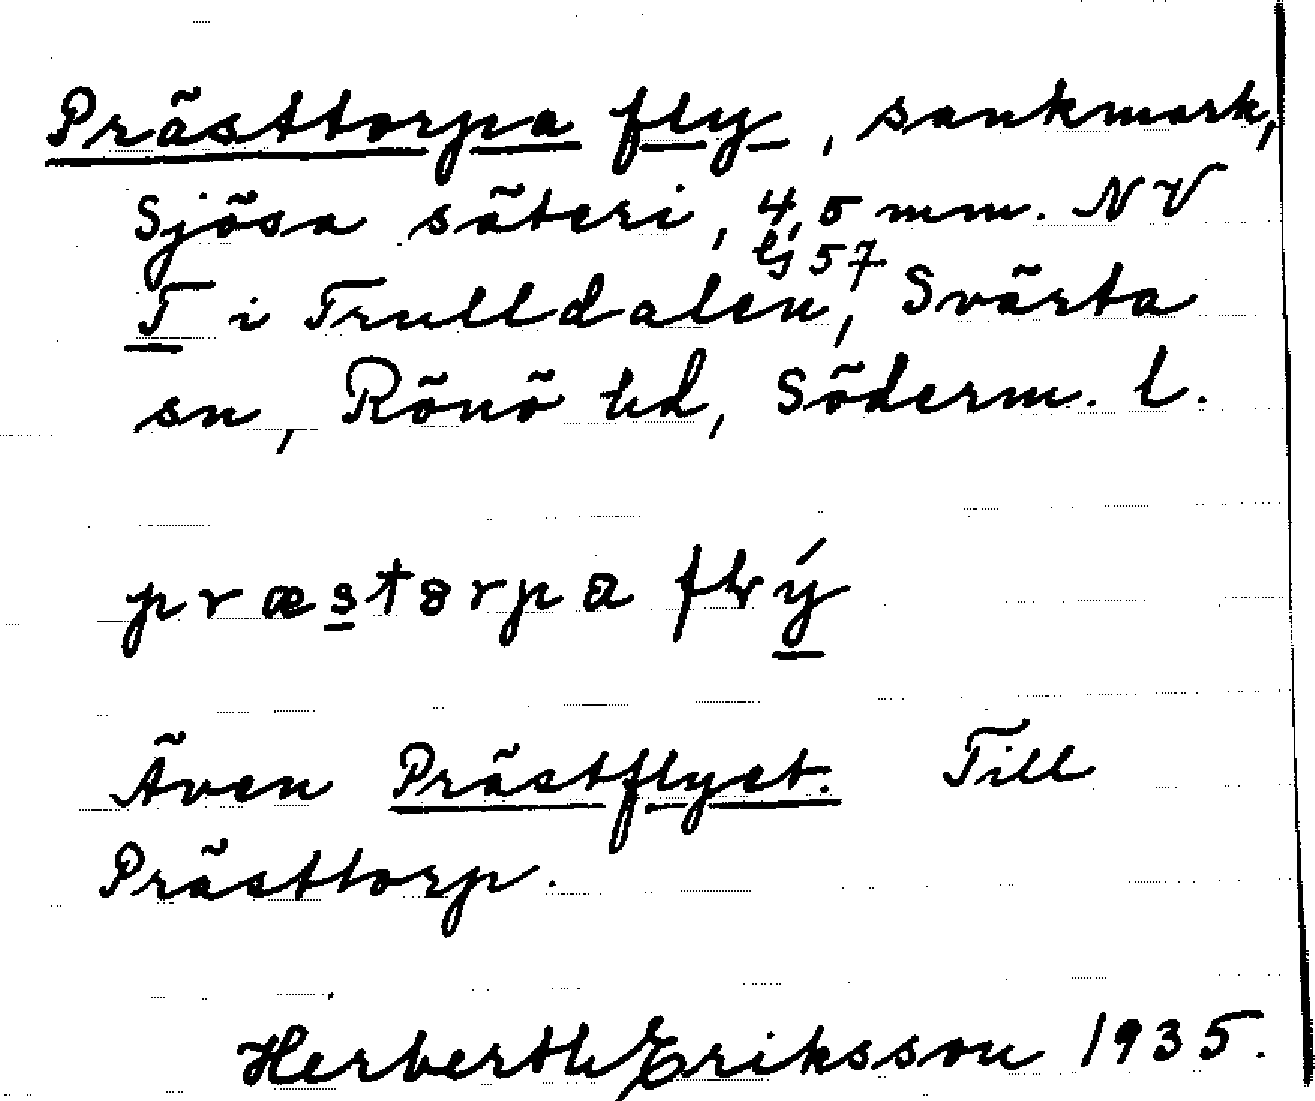 Prästtorpa fly, sankmark,
Sjösa säteri, 4,5 mm. NV
T i Trulldalen, Svärta
G57
sn, Rönö hd, Söderm. l.
præstørpa flý
Även Prästflyet. Till
Prästtorp.
Herberth Eriksson 1935.